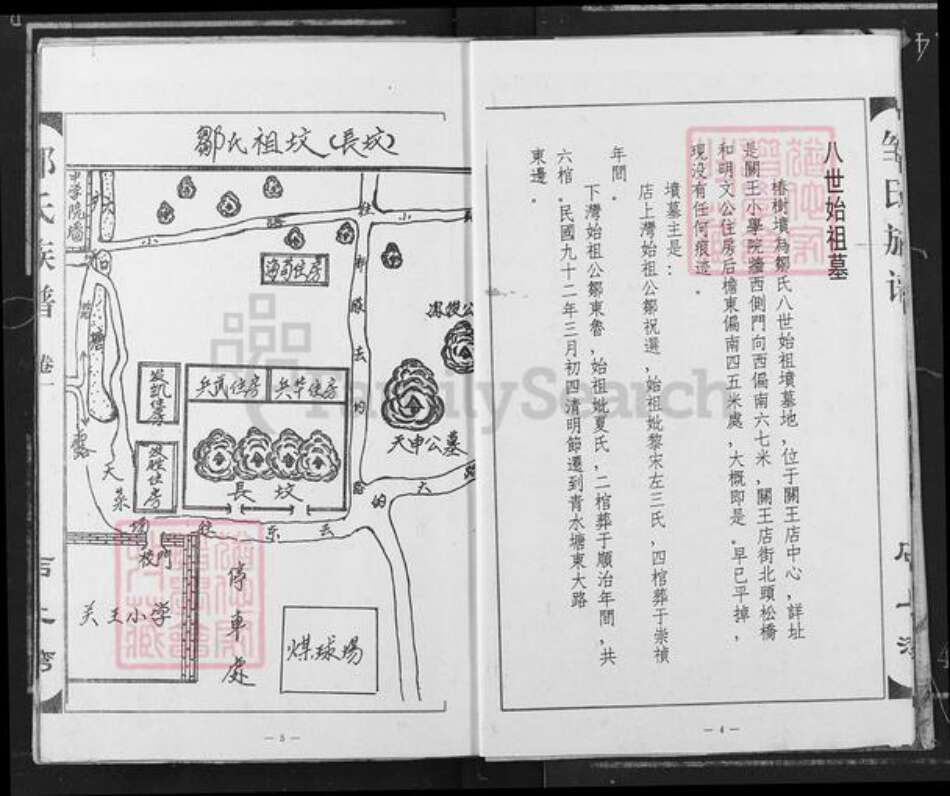 八世始祖墓
樁樹墳為鄒氏八世始祖墳墓地，位于關王店中心，詳址
是關王小學院牆西側門向西偏南六七米，關王店街北頭松橋
和明文公住房后檐東偏南四五米處，大概即是。早已平掉，
現没有任何痕迹。
墳墓主是：
店上灣始祖公鄒祝選，始祖妣黎宋左三氏，四棺葬于崇禎
年間。
下灣始祖公鄒東魯，始祖妣夏氏，二棺葬于順治年間，共
六棺。民國九十二年三月初四清明節遷到青水塘東大路
東邊。
—4—
鄒氏祖坟(長坟)
中学院墙
小
路
往
小
海荀住房
天申公墓
兵武住房
兵华住房
长坟
发凯住房
发胜住房
塘
天
菜
场
往
东
去
的
大
路
校門
关王小学
停車處
煤球場
—5—
氏族譜
卷一
FamilySearch